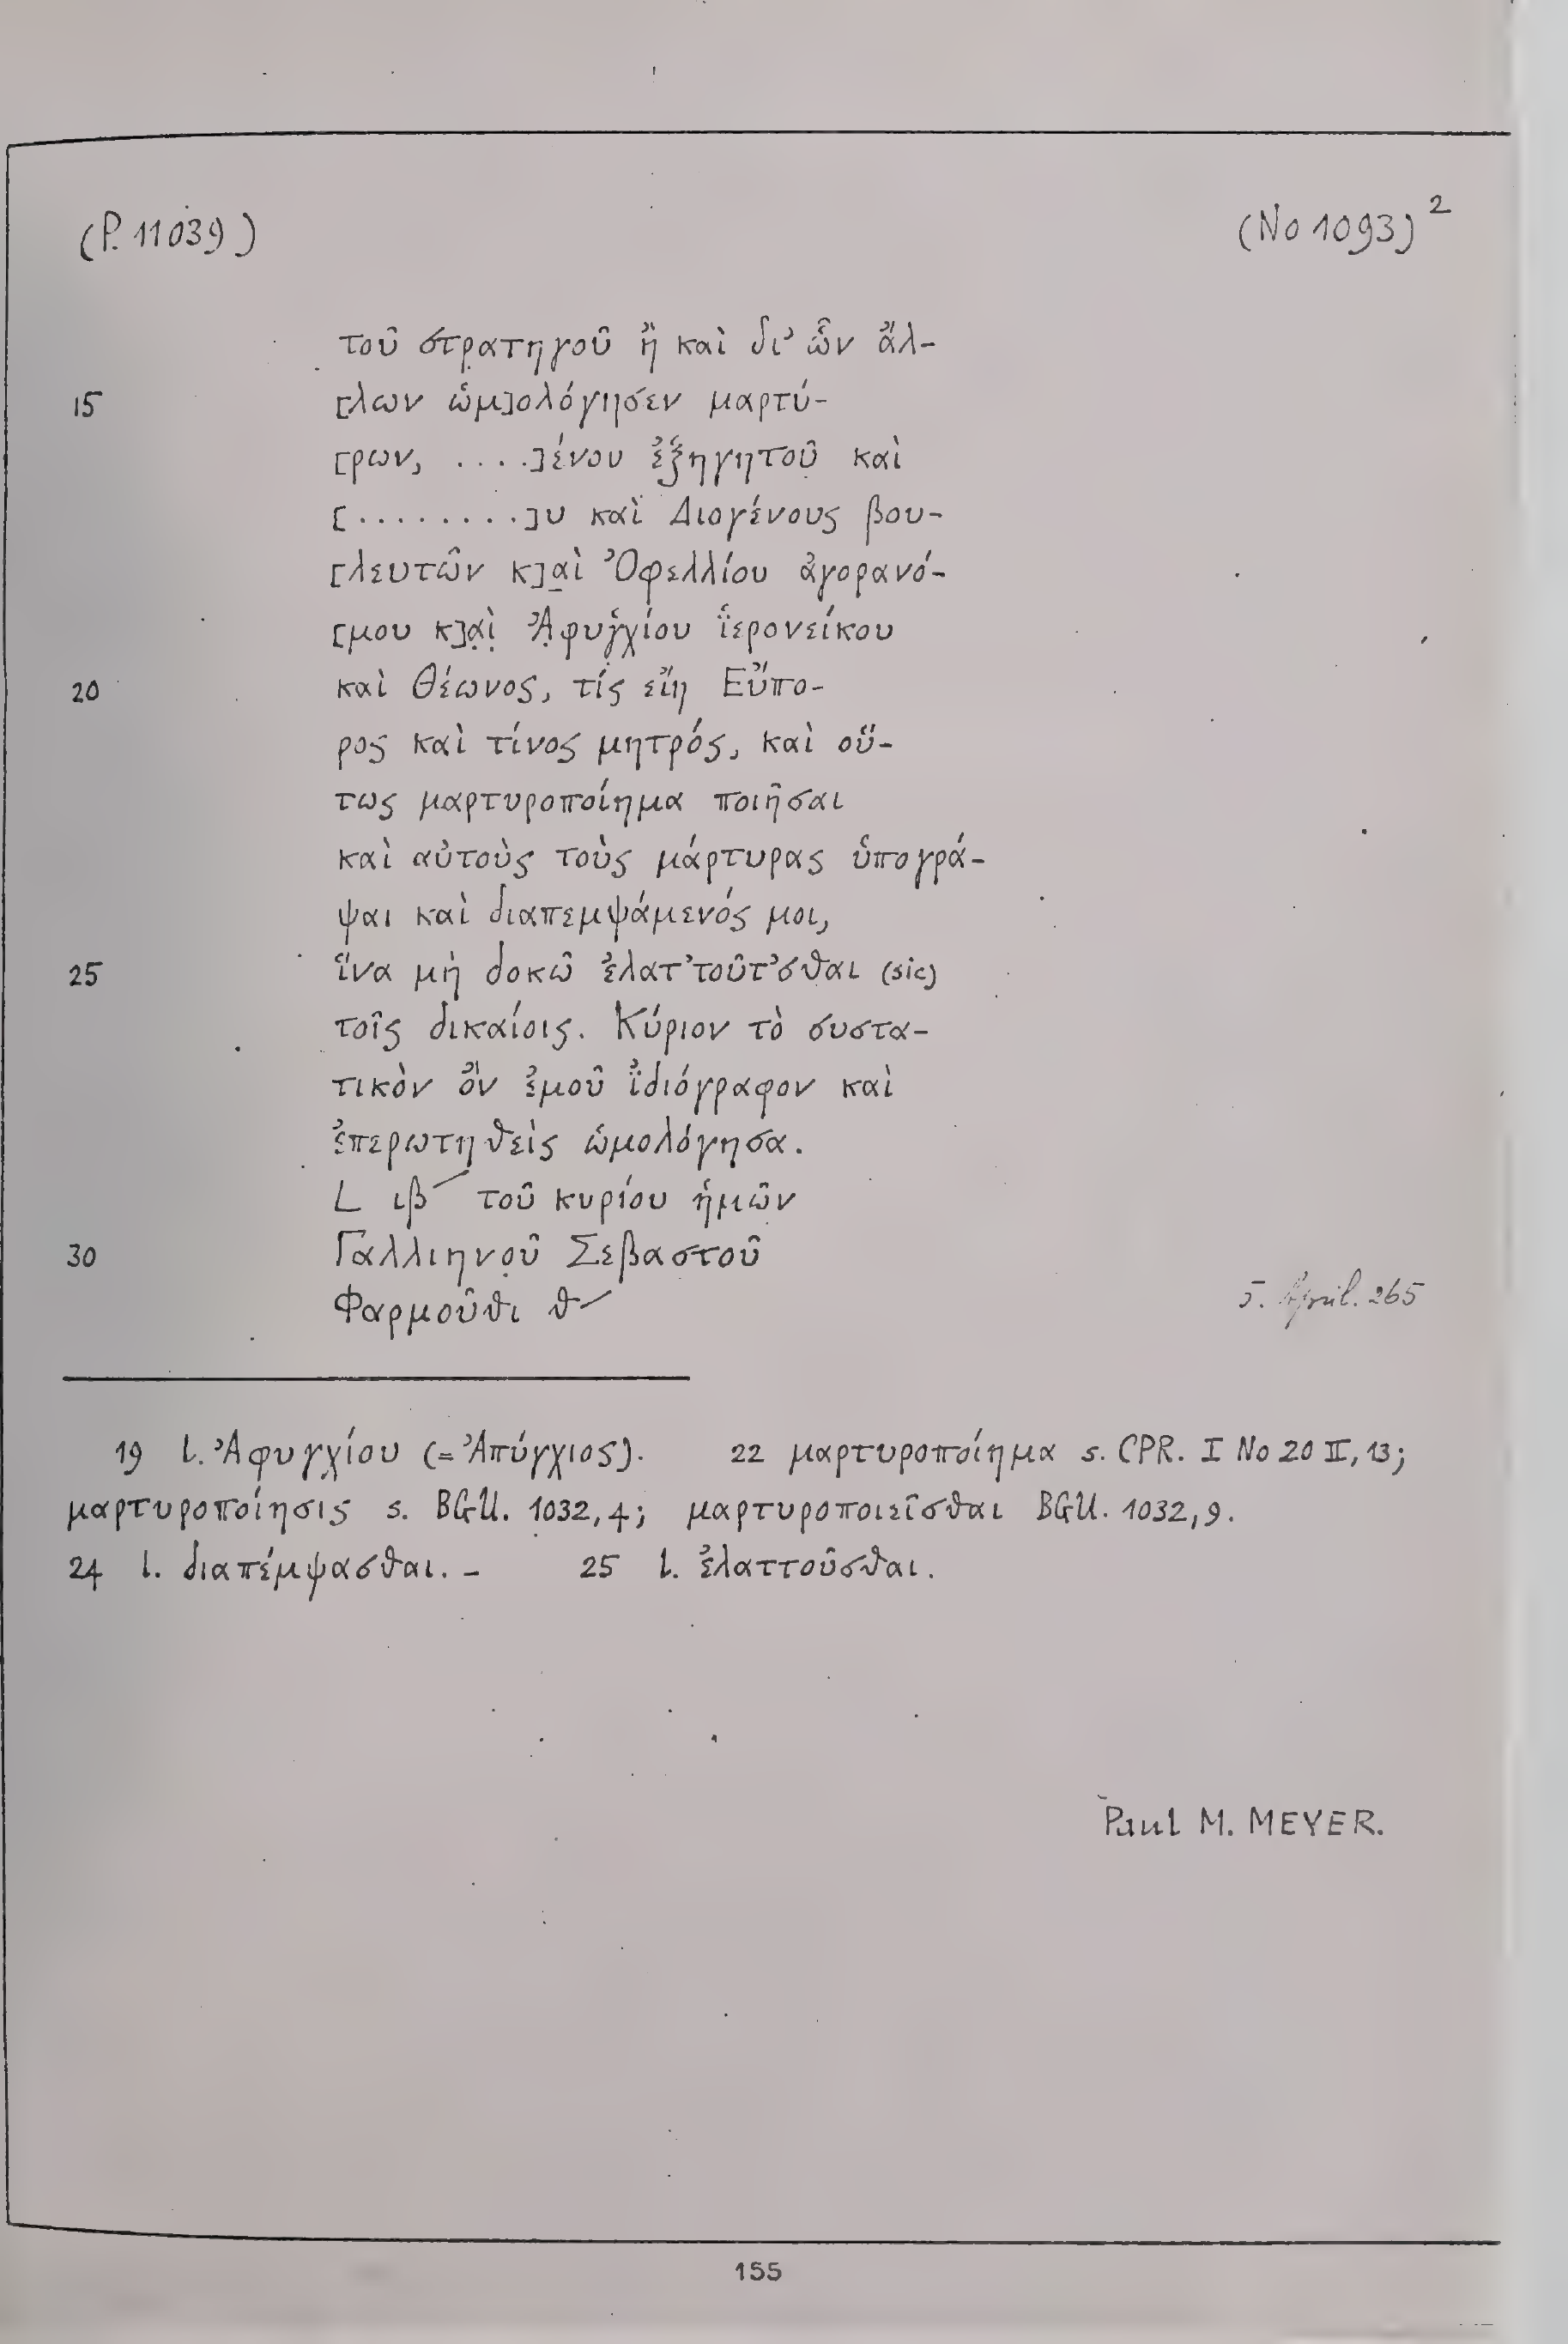 (P. 11039) (No 1093)²
τοῦ στρατηγοῦ ἢ καὶ δι' ὧν ἄλ-
15 [λων ὡμ]ολόγησεν μαρτύ-
[ρων, ....]ένου ἐξηγητοῦ καὶ
[.........]υ καὶ Διογένους βου-
[λευτῶν κ]αὶ Ὀφελλίου ἀγορανό-
[μου κ]α̣ὶ̣ Ἀ̣φυγ̓χίου ϊερονείκου
20 καὶ Θέωνος, τίς εἴη Εὔπο-
ρος καὶ τίνος μητρός, καὶ οὕ-
τως μαρτυροποίημα ποιῆσαι
καὶ αὐτοὺς τοὺς μάρτυρας ὑπογρά-
ψαι καὶ διαπεμψάμενός μοι,
25 ἵνα μὴ δοκῶ ἐλατ'τοῦτ'σθαι (sic)
τοῖς δικαίοις. Κύριον τὸ συστα-
τικὸν ὂν ἐμοῦ ϊδιόγραφον καὶ
ἐπερωτηθεὶς ὡμολόγησα.
L ιβ/ τοῦ κυρίου ἡμῶν
30 Γαλλιηνο̣ῦ Σεβαστοῦ
Φαρμοῦθι θ/ 5. April. 265
19 l. Ἀφυγχίου (= Ἀπύγχιος). 22 μαρτυροποίημα s. CPR. I No 20 II, 13;
μαρτυροποίησις s. BGU. 1032, 4; μαρτυροποιεῖσθαι BGU. 1032, 9.
24 l. διαπέμψασθαι. – 25 l. ἐλαττοῦσθαι.
Paul M. MEYER.
155